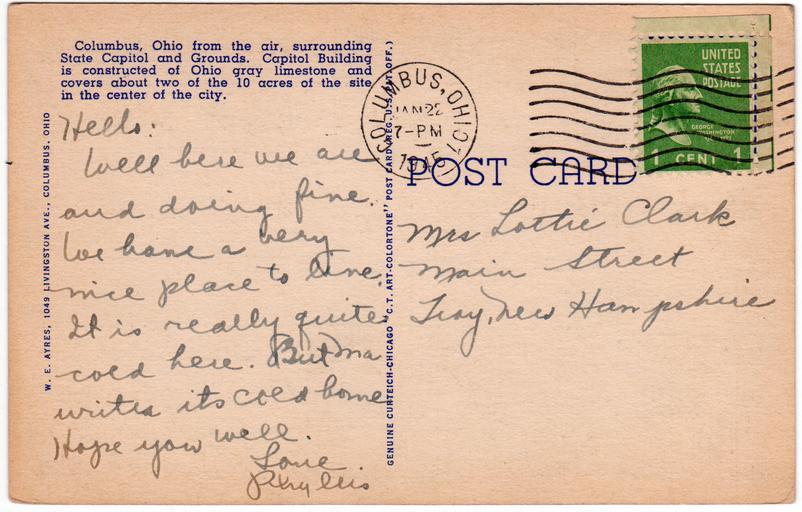 Columbus, Ohio from the air, surrounding
State Capitol and Grounds. Capitol Building
is constructed of Ohio gray limestone and
covers about two of the 10 acres of the site
in the center of the city.
Hello:
Well here we are
and doing fine.
We have a very
nice place to live.
It is really quite
cold here. But Ma
writes its cold home
Hope you well.
Love
Phyllis
W. E. AYRES, 1049 LIVINGSTON AVE., COLUMBUS, OHIO
GENUINE CURTEICH-CHICAGO "C.T. ART-COLORTONE" POST CARD (REG. U.S. PAT. OFF.)
COLUMBUS, OHIO
JAN 22
7-PM
1945
UNITED
STATES
POSTAGE
GEORGE
WASHINGTON
1 CENT 1
POST CARD
Mrs Lottie Clark
Main Street
Troy, New Hampshire